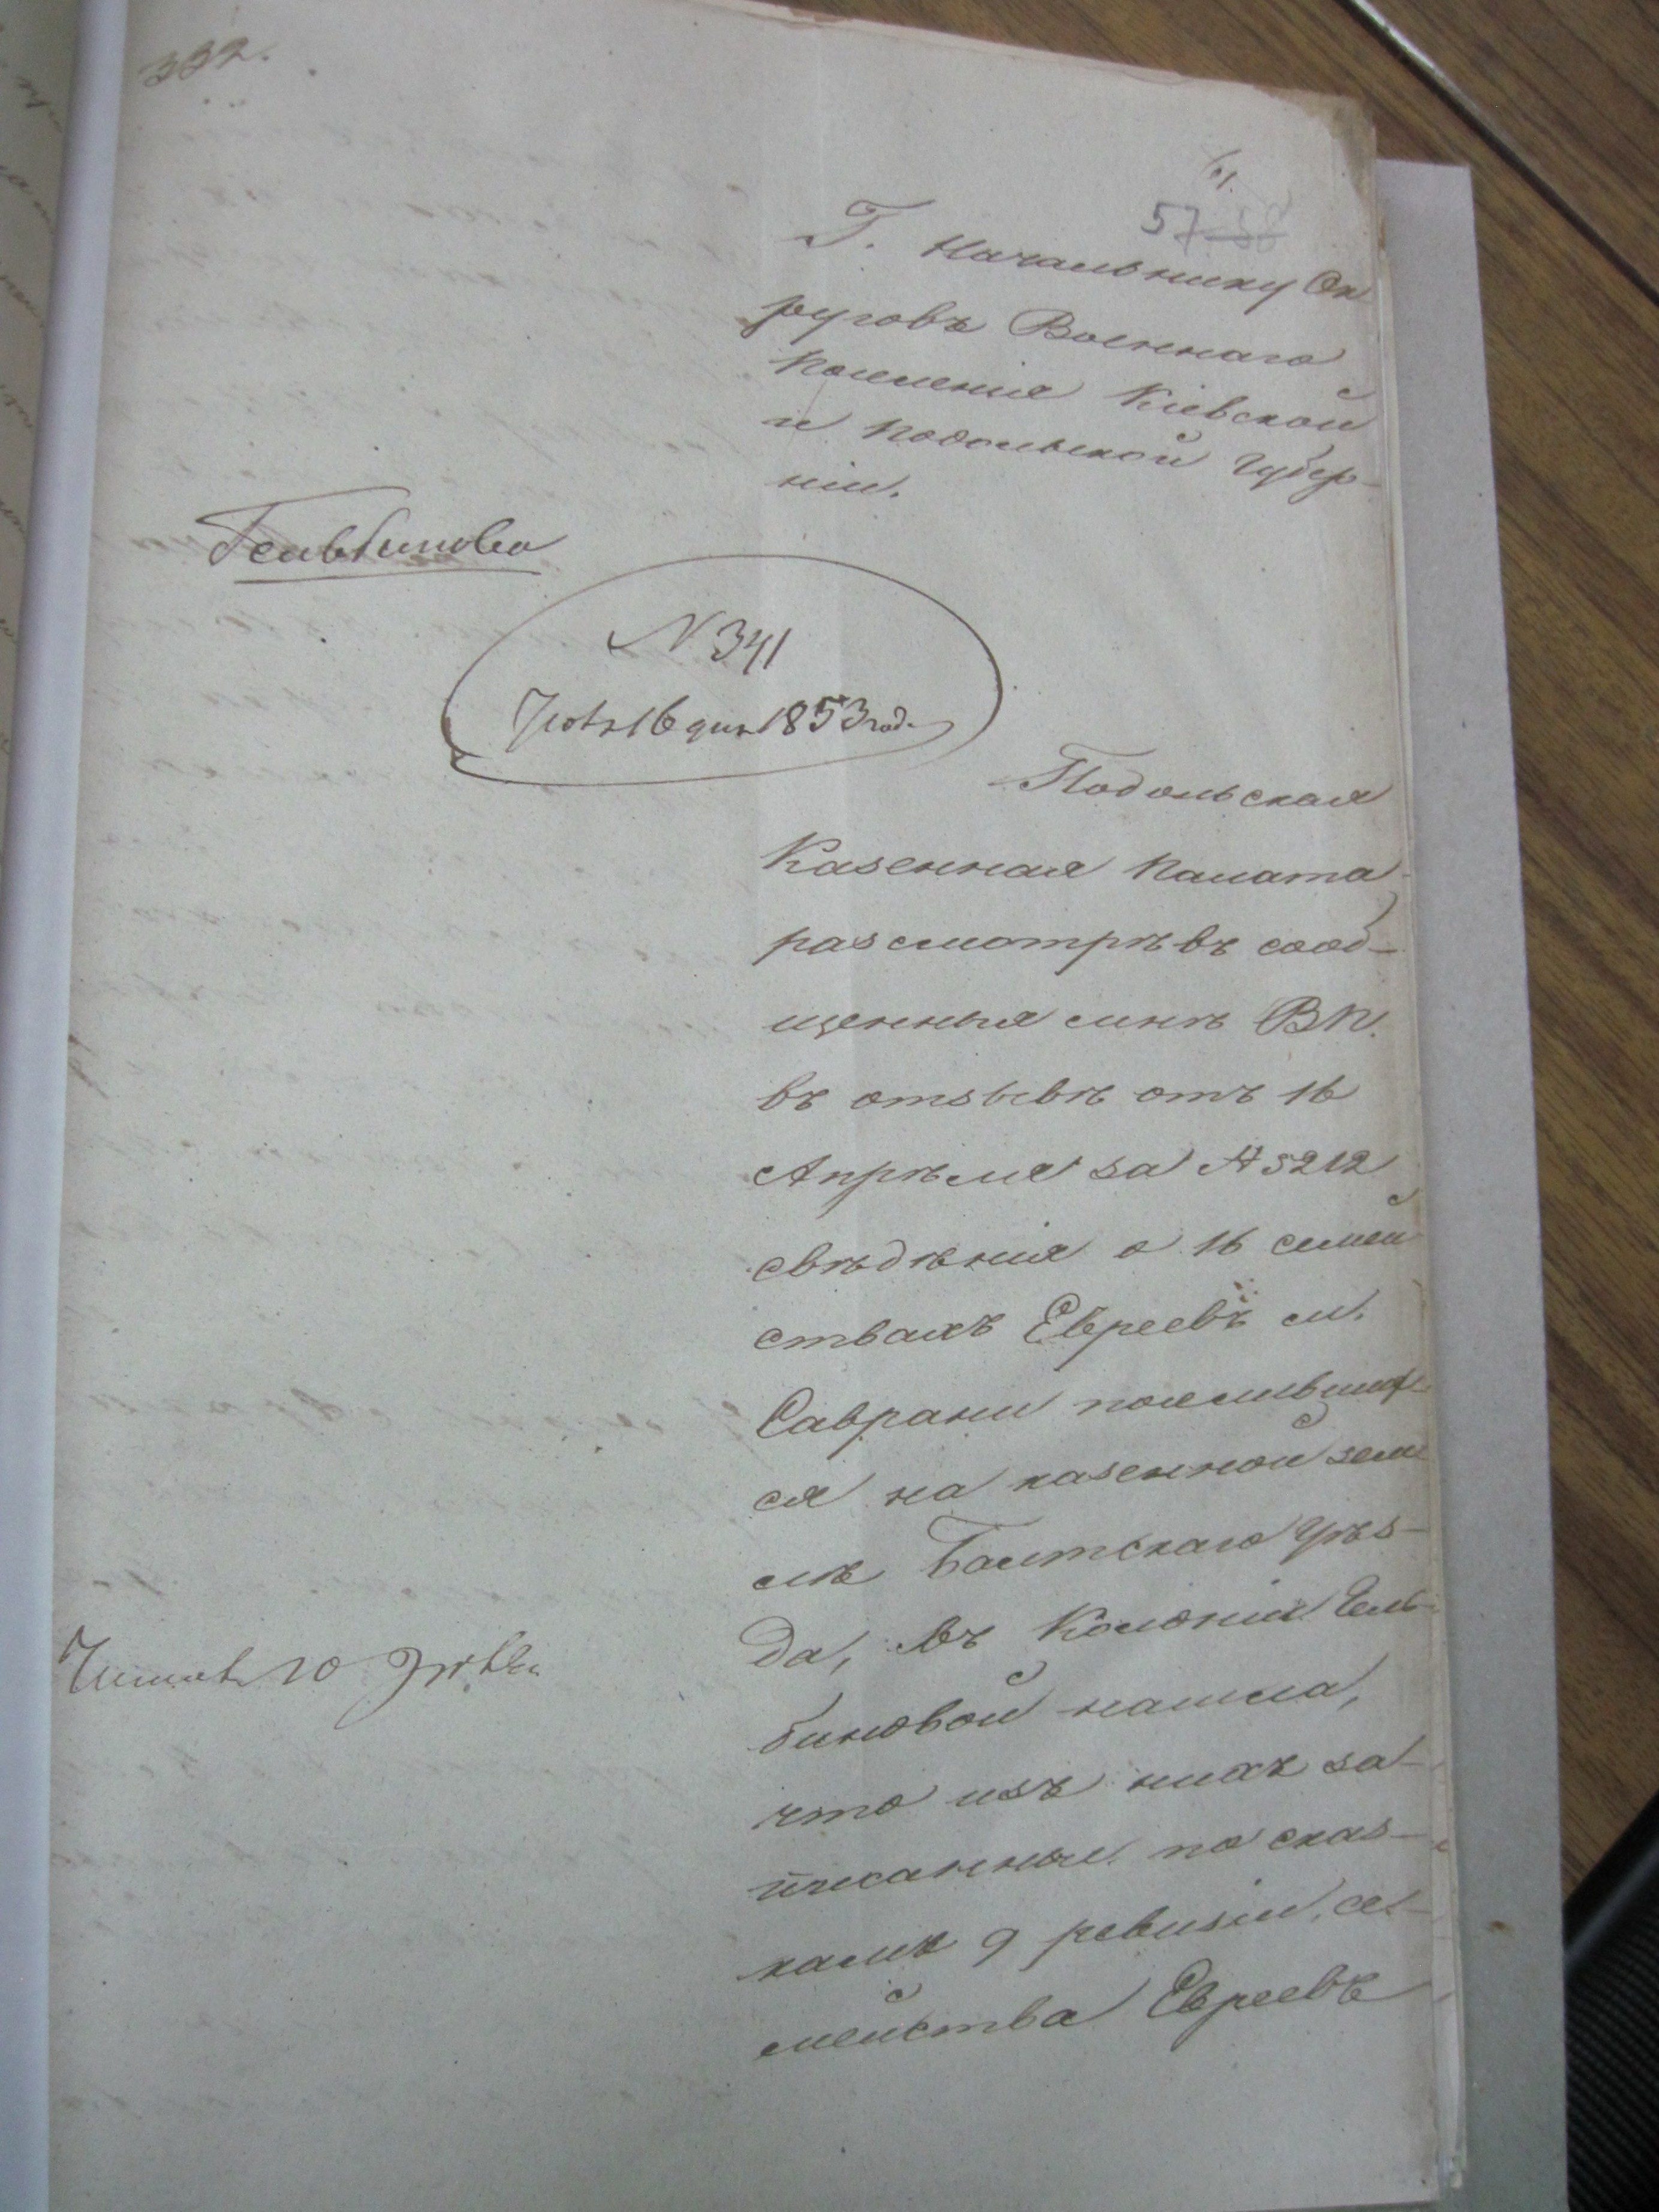 332.
61.
57 58
Г. Начальнику Ок
руговъ Военнаго
Поселенія Кіевской
и Подольской Губер-
ніи.
Гельбиново
N 341
16 дня 1853 год.
Подольская
Казенная Палата
разсмотрѣвъ сооб-
щенныя мнѣ ВП.
въ отзывѣ отъ 16
Апрѣля за № 5212
свѣдѣнія о 16 семей
ствахъ Евреевъ м.
Саврани поселивших
ся на казенной зем
лѣ Балтскаго Уѣз-
да, въ Колоніи Гель-
биновой нашла,
что изъ нихъ за-
писанные по сказ-
камъ 9 ревизіи, се-
мейства Евреевъ